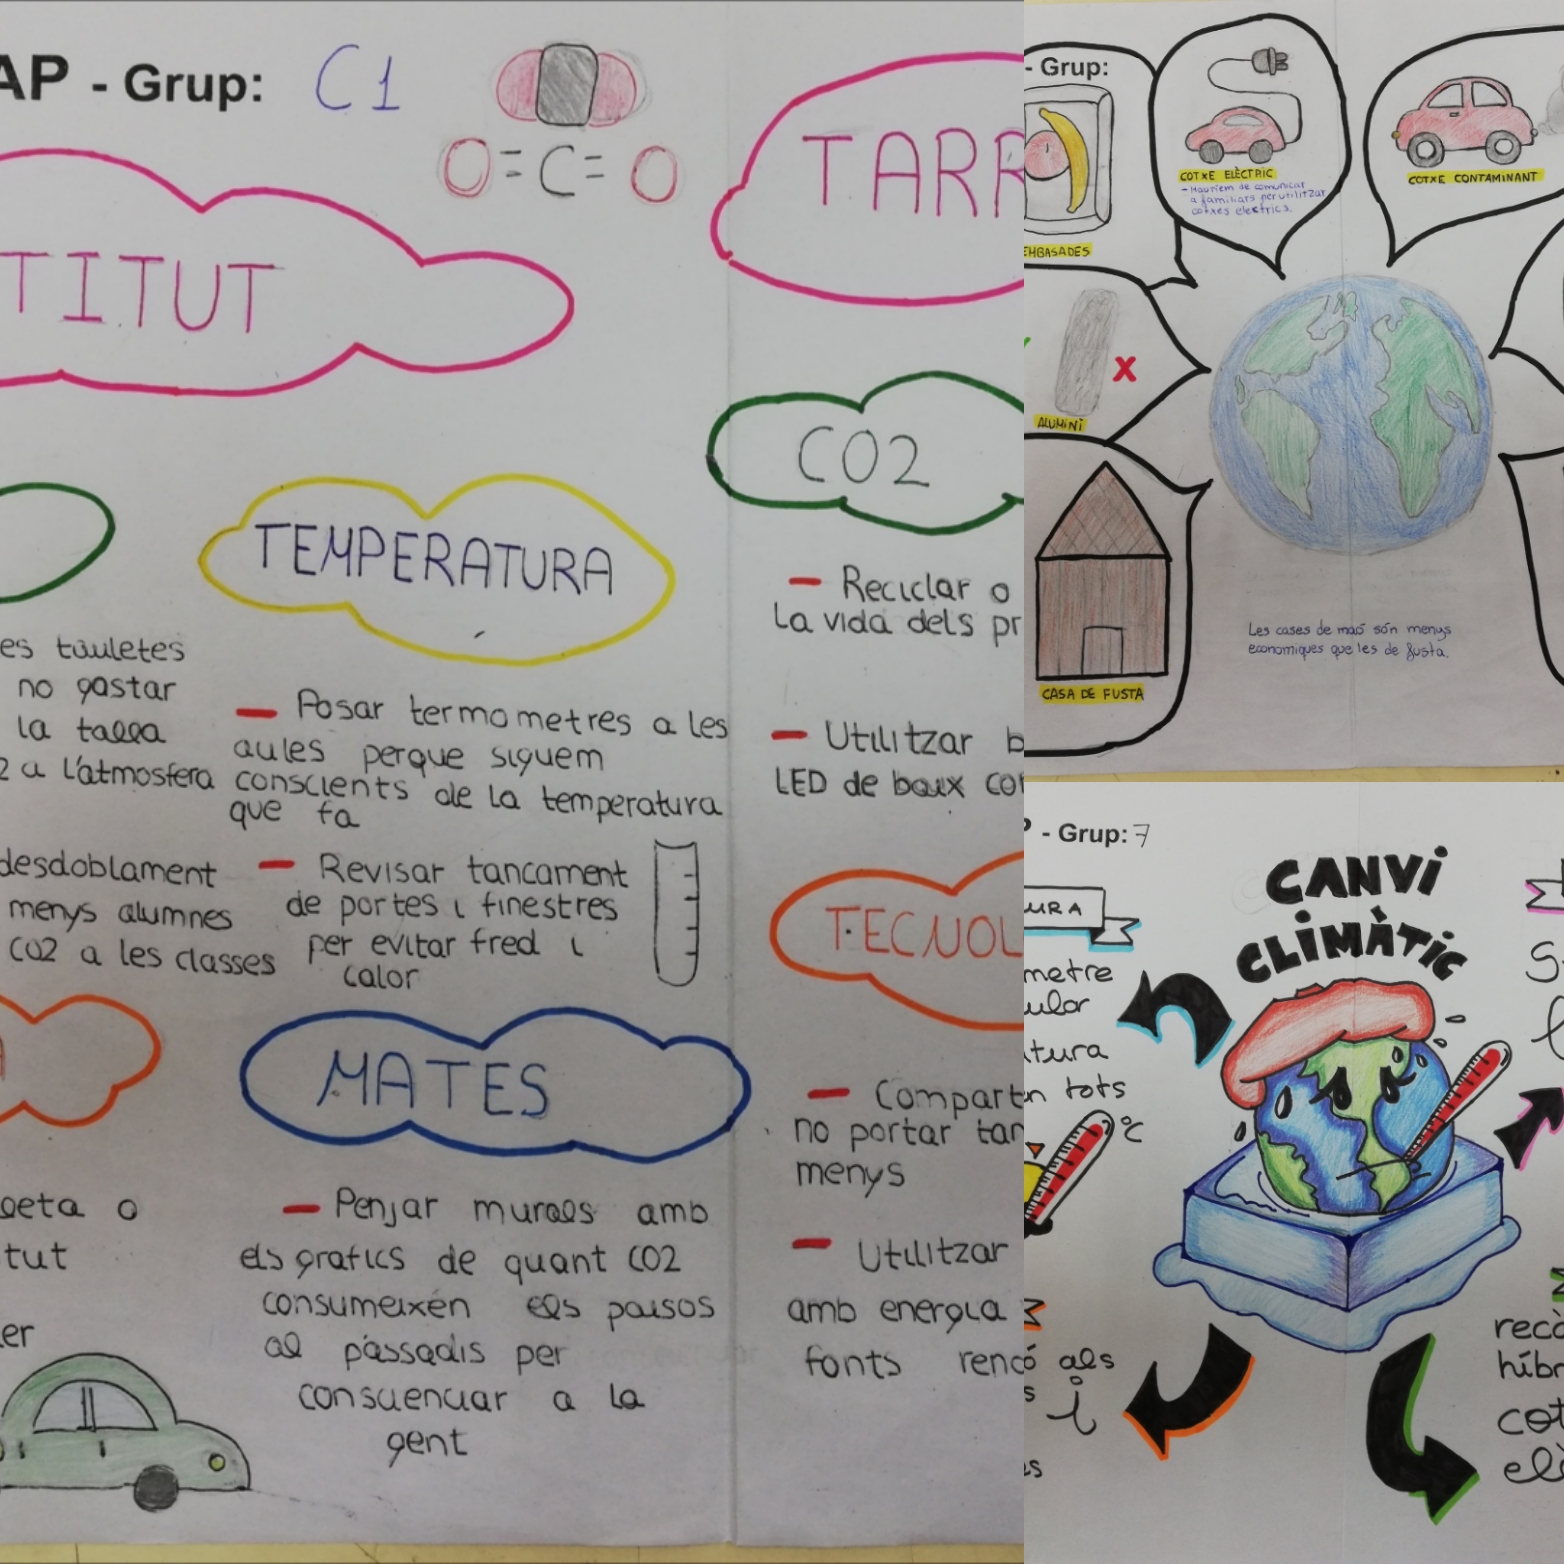 AP - Grup: C1
O=C=O
TITUT
TARR
CO2
TEMPERATURA
es tauletes
no gastar
la talla
2 a l'atmosfera
desdoblament
menys alumnes
CO2 a les classes
- Posar termometres a les
aules perque siguem
conscients de la temperatura
que fa
- Revisar tancament
de portes i finestres
per evitar fred i
calor
- Reciclar o
la vida dels pr
- Utilitzar b
LED de baix con
TECNOL
MATES
tut
er
- Penjar murals amb
els grafics de quant CO2
consumeixen els paisos
al passadis per
conscienciar a la
gent
- Compart
no portar tan
menys
- Utilitzar
amb energia
fonts reno
- Grup:
EMBASADES
COTXE ELÈCTRIC
- Hauriem de comunicar
a familiars per utilitzar
cotxes elèctrics.
COTXE CONTAMINANT
X
ALUMINI
CASA DE FUSTA
Les cases de maó són menys
economiques que les de fusta.
P - Grup: 7
CANVi
CLiMÀTiC
URA
metre
ular
atura
en tots
°C
ó als
s i
es
recà
híbr
cot
elè